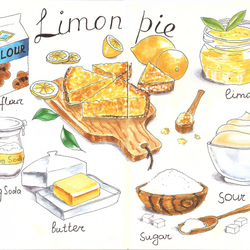 Limon pie
FLOUR
flour
lim
Soda
g Soda
butter
sugar
sour